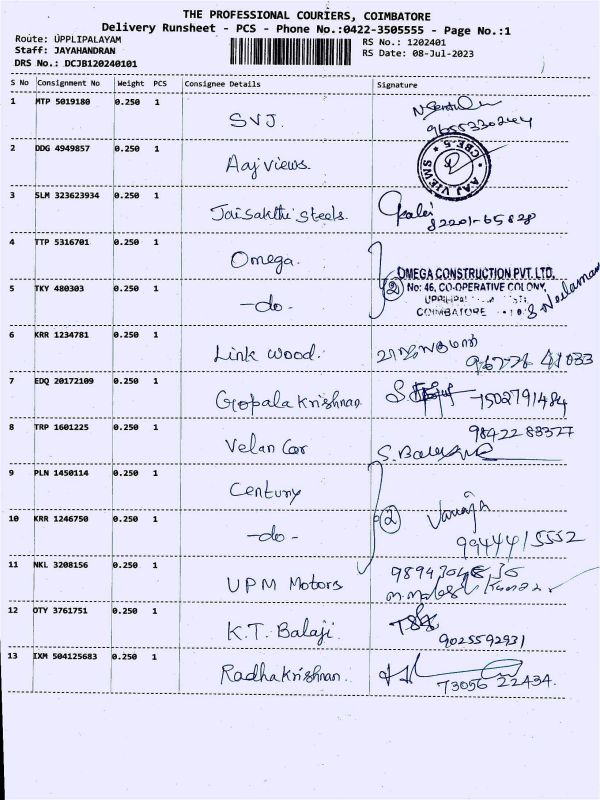 THE PROFESSIONAL COURIERS, COIMBATORE
Delivery Runsheet - PCS - Phone No.:0422-3505555 - Page No.:1
Route: UPPLIPALAYAM
RS No.: 1202401
Staff: JAYAHANDRAN
RS Date: 08-Jul-2023
DRS No.: DCJB120240101
S No Consignment No Weight PCS Consignee Details Signature
1 MTP 5019180 0.250 1
SVJ.
2 DDG 4949857 0.250 1
Aaj views.
AAJ VIEWS CBE-5
3 SLM 323623934 0.250 1
Jaisakthi steels.
82201-65828
4 TTP 5316701 0.250 1
Omega.
OMEGA CONSTRUCTION PVT. LTD.
5 TKY 480303 0.250 1
2 No: 46, CO-OPERATIVE COLONY,
-do-
COIMBATORE
6 KRR 1234781 0.250 1
Link wood.
7 EDQ 20172109 0.250 1
Gopala Krishnan
7502791484
8 TRP 1601225 0.250 1
98422 83327
Velan Car
9 PLN 1450114 0.250 1
Century
10 KRR 1246750 0.250 1
2 Vanaja
-do-
99444 15552
11 NKL 3208156 0.250 1
UPM Motors
12 OTY 3761751 0.250 1
K.T. Balaji.
9025592931
13 IXM 504125683 0.250 1
Radha Krishnan.
73056 22434.